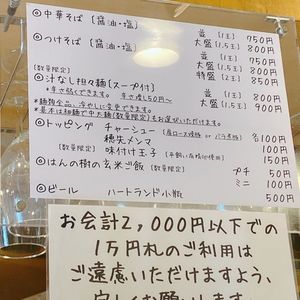 ◎中華そば〔醤油・塩〕 並(1玉) 750円
大盛(1.5玉) 800円
◎つけそば〔醤油・塩〕 並(1玉) 800円
大盛(1.5玉)
特盛(2玉) 850円
(数量限定)
◎汁なし担々麺〔スープ付〕 並(1玉) 800円
大盛(1.5玉) 900円
*基本は細麺で中太麺(数量限定)もお選びいただけます。
◎トッピング チャーシュー 各100円
穂先メンマ 100円
(数量限定) 味付け玉子 150円
◎はんの樹の玄米ご飯(数量限定) プチ 50円
ミニ 100円
◎ビール ハートランド小瓶 500円
お会計2,000円以下での
1万円札のご利用は
ご遠慮いただけますよう、